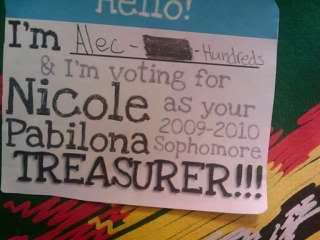 Hello!
I'm Alec - - Hundreds
& I'm voting for
Nicole as your
Pabilona 2009-2010
Sophomore
TREASURER!!!